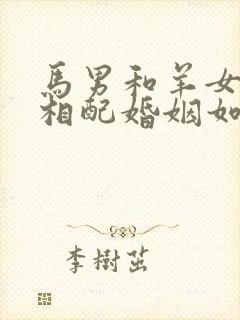 馬男和羊女
相配婚姻如
李樹茁